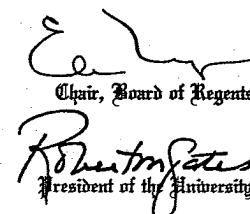 Chair, Board of Regents
Robert M Gates
President of the University